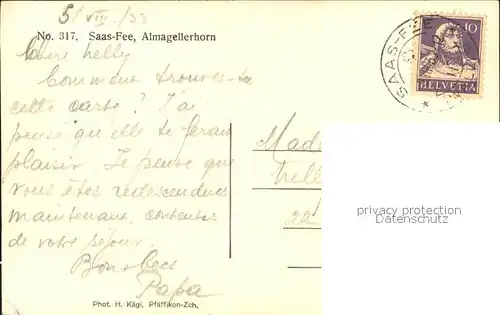 5/VIII./33
No. 317. Saas-Fee, Almagellerhorn
Chère Nelly
Comment trouves-tu
cette carte? J'ai
pensé qu'elle te ferais
plaisir. Je pense que
vous êtes redescendues
maintenant, contentes
de votre séjour.
Bons becs
Papa
Phot. H. Kägi, Pfäffikon-Zch.
SAAS-FEE
10
HELVETIA
Mad
Nell
22
privacy protection
Datenschutz